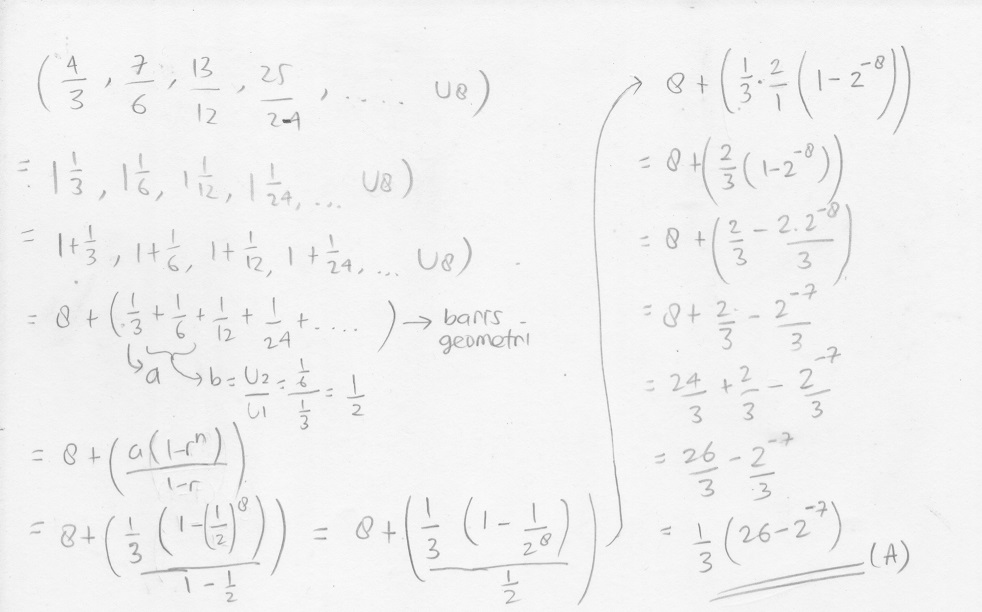 ( 4/3 , 7/6 , 13/12 , 25/24 , .... U8 )
= 1 1/3 , 1 1/6 , 1 1/12 , 1 1/24 , ... U8 )
= 1+1/3 , 1+1/6 , 1+1/12 , 1+1/24 , ... U8 )
= 8 + ( 1/3 + 1/6 + 1/12 + 1/24 + .... ) → barrs geometri
↳ a ↳ b = U2/U1 = (1/6)/(1/3) = 1/2
= 8 + ( a(1-r^n) / 1-r )
= 8 + ( 1/3 (1-(1/12)^8) / 1-1/2 ) = 8 + ( 1/3 (1 - 1/2^8) / 1/2 )
→ 8 + ( 1/3 . 2/1 ( 1-2^-8 ) )
= 8 + ( 2/3 ( 1-2^-8 ) )
= 8 + ( 2/3 - 2.2^-8/3 )
= 8 + 2/3 - 2^-7/3
= 24/3 + 2/3 - 2^-7/3
= 26/3 - 2^-7/3
= 1/3 ( 26-2^-7 ) (A)